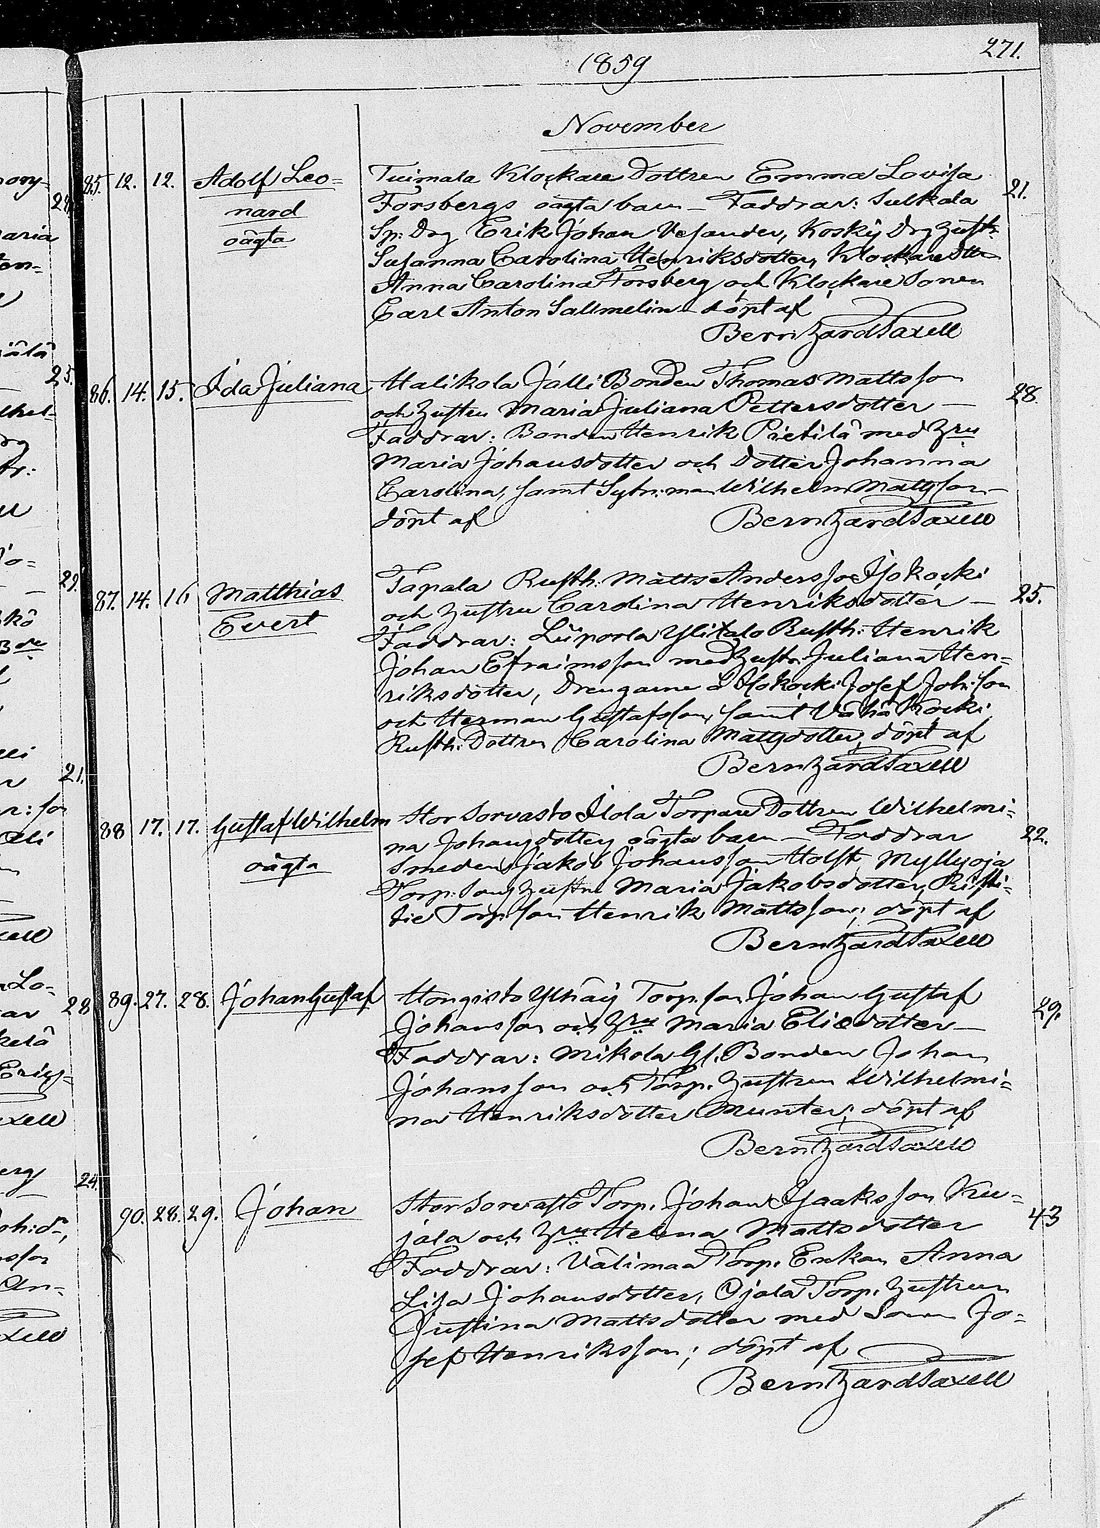 271.
1859
November
85. 12. 12. Adolf Leo= Tuimala Klockare Dottren Emma Lovisa 21.
nard Forsbergs oägta barn _ Faddrar: Sulkala
oägta Sp: Drg Erik Johan Vesander, Koski Drg hust:
Susanna Carolina Henriksdotter, Klockare dttr
Anna Carolina Forsberg och Klockare Sonen
Carl Anton Sallmelin _ döpt af
Bernhard Taxell
86. 14. 15. Ida Juliana Halikola Jälli Bonden Thomas Mattsson 28.
och hustru Maria Juliana Pettersdotter _
Faddrar: Bonden Henrik Pietilä med hru
Maria Johansdotter och Dotter Johanna
Carolina, samt Wilhelm Mattsson _
döpt af Bernhard Taxell
87. 14. 16 Matthias Tapala Rusth. Matts Andersson Isokoski 25.
Evert och hustru Carolina Henriksdotter _
Faddrar: Liipola Ylitalo Rusth: Henrik
Johan Efraimsson med hustr. Juliana Hen=
riksdotter, Drengarne å Isokoski Josef Joh:son
och Herman Gustafsson, samt Vähä Koski
Rusth: Dottren Carolina Mattsdotter, döpt af
Bernhard Taxell
88 17. 17. Gustaf Wilhelm Stor Sorvasto Ilola Torpare Dottren Wilhelmi= 22.
oägta na Johansdotters oägta barn _ Faddrar
Smeden Jakob Johansson Holst, Myllyoja
Torp: Sons hustru Maria Jakobsdotter, Risti=
tie Torp. son Henrik Mattsson; döpt af
Bernhard Taxell
89. 27. 28. Johan Gustaf Hongisto Torp. son Johan Gustaf 29.
Johansson och hru Maria Eliedotter _
Faddrar: Mikola Gl. Bonden Johan
Johansson och Torp. hustrun Wilhelmi=
na Henriksdotter Munter; döpt af
Bernhard Taxell
90. 28. 29. Johan Stor Sorvasto Torp. Johan Isaaksson Ku= 43
jala och hru Helena Mattsdotter
Faddrar: Välimaa Torp. Enkan Anna
Lisa Johansdotter, Ojala Torp. hustrun
Justina Mattsdotter med Sonen Jo=
sef Henriksson; döpt af
Bernhard Taxell